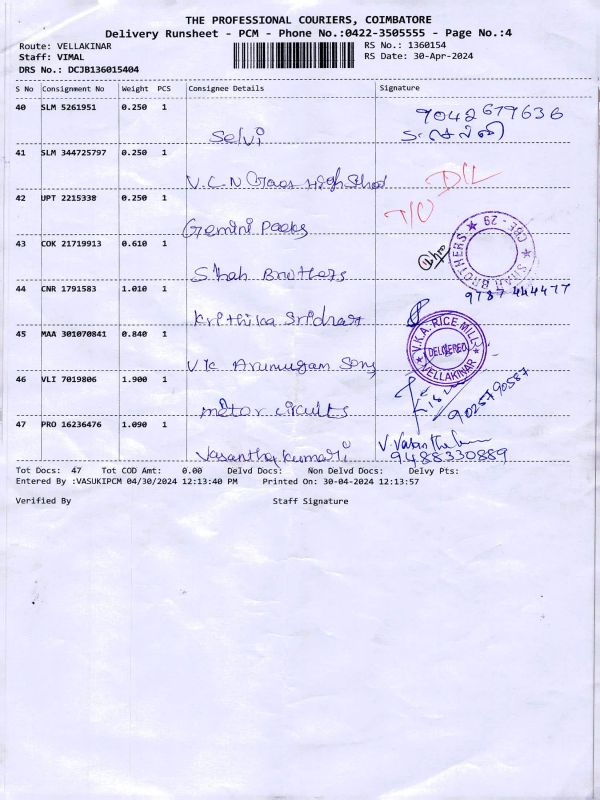 THE PROFESSIONAL COURIERS, COIMBATORE
Delivery Runsheet - PCM - Phone No.:0422-3505555 - Page No.:4
Route: VELLAKINAR
RS No.: 1360154
Staff: VIMAL
RS Date: 30-Apr-2024
DRS No.: DCJB136015404
S No Consignment No Weight PCS Consignee Details Signature
40 SLM 5261951 0.250 1
9042679636
Selvi
41 SLM 344725797 0.250 1
V.C.N High School
D/L
42 UPT 2215338 0.250 1
T/O
Gemini Packs
43 COK 21719913 0.610 1
SHAH BROTHERS ★ CBE - 29 ★
Shah Brothers
9787 444477
44 CNR 1791583 1.010 1
Krithika Sridhar
V.K.A. RICE MILL
DELIVERED
VELLAKINAR
45 MAA 301070841 0.840 1
Vk Arumugam Song
46 VLI 7019806 1.900 1
motor circuits
9025790587
47 PRO 16236476 1.090 1
Vasanthakumari
9488330889
Tot Docs: 47 Tot COD Amt: 0.00 Delvd Docs: Non Delvd Docs: Delvy Pts:
Entered By :VASUKIPCM 04/30/2024 12:13:40 PM Printed On: 30-04-2024 12:13:57
Verified By Staff Signature